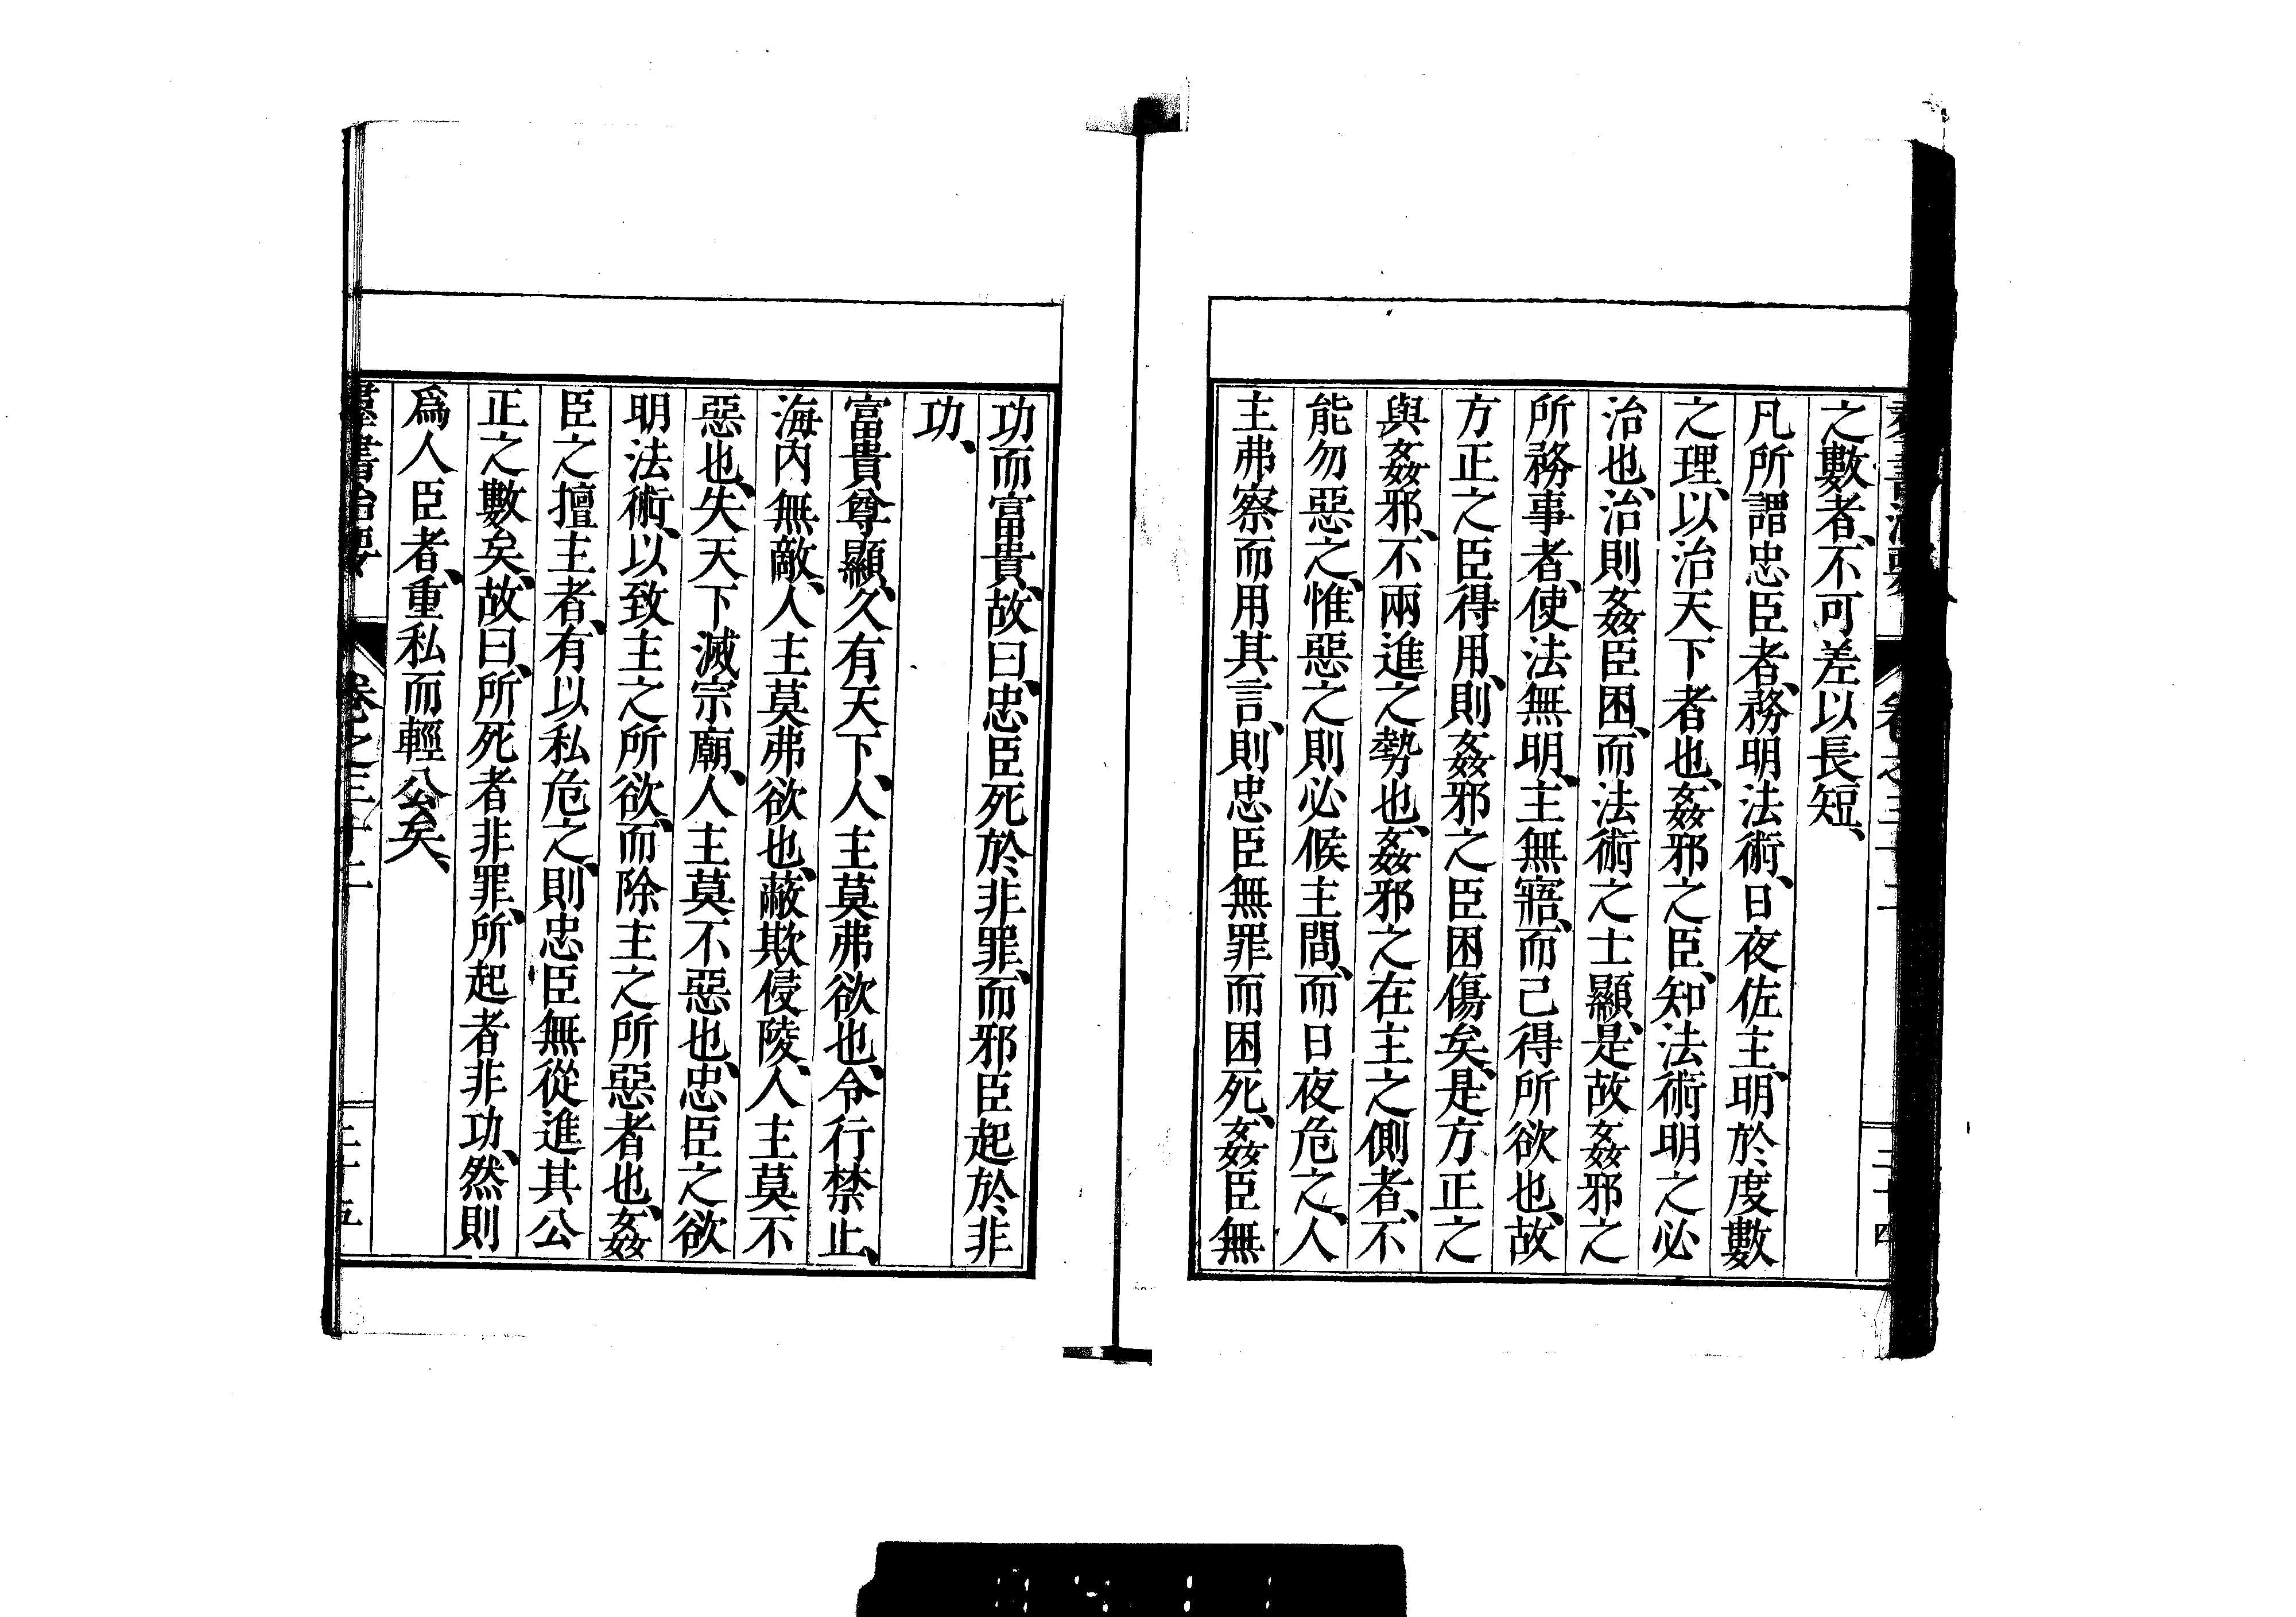 羣書治要 卷之三十二 三十四
之數者、不可差以長短、
凡所謂忠臣者、務明法術、日夜佐主、明於度數
之理、以治天下者也、姦邪之臣、知法術明之必
治也、治則姦臣困、而法術之士顯、是故姦邪之
所務事者、使法無明、主無寤、而己得所欲也、故
方正之臣得用、則姦邪之臣困傷矣、是方正之
與姦邪、不兩進之勢也、姦邪之在主之側者、不
能勿惡之、惟惡之則必候主間、而日夜危之、人
主弗察而用其言、則忠臣無罪而困死、姦臣無
功而富貴、故曰、忠臣死於非罪、而邪臣起於非
功、
富貴尊顯、久有天下、人主莫弗欲也、令行禁止、
海內無敵、人主莫弗欲也、蔽欺侵陵、人主莫不
惡也、失天下滅宗廟、人主莫不惡也、忠臣之欲
明法術、以致主之所欲、而除主之所惡者也、姦
臣之擅主者、有以私危之、則忠臣無從進其公
正之數矣、故曰、所死者非罪、所起者非功、然則
爲人臣者、重私而輕公矣、
羣書治要 卷之三十二 三十五